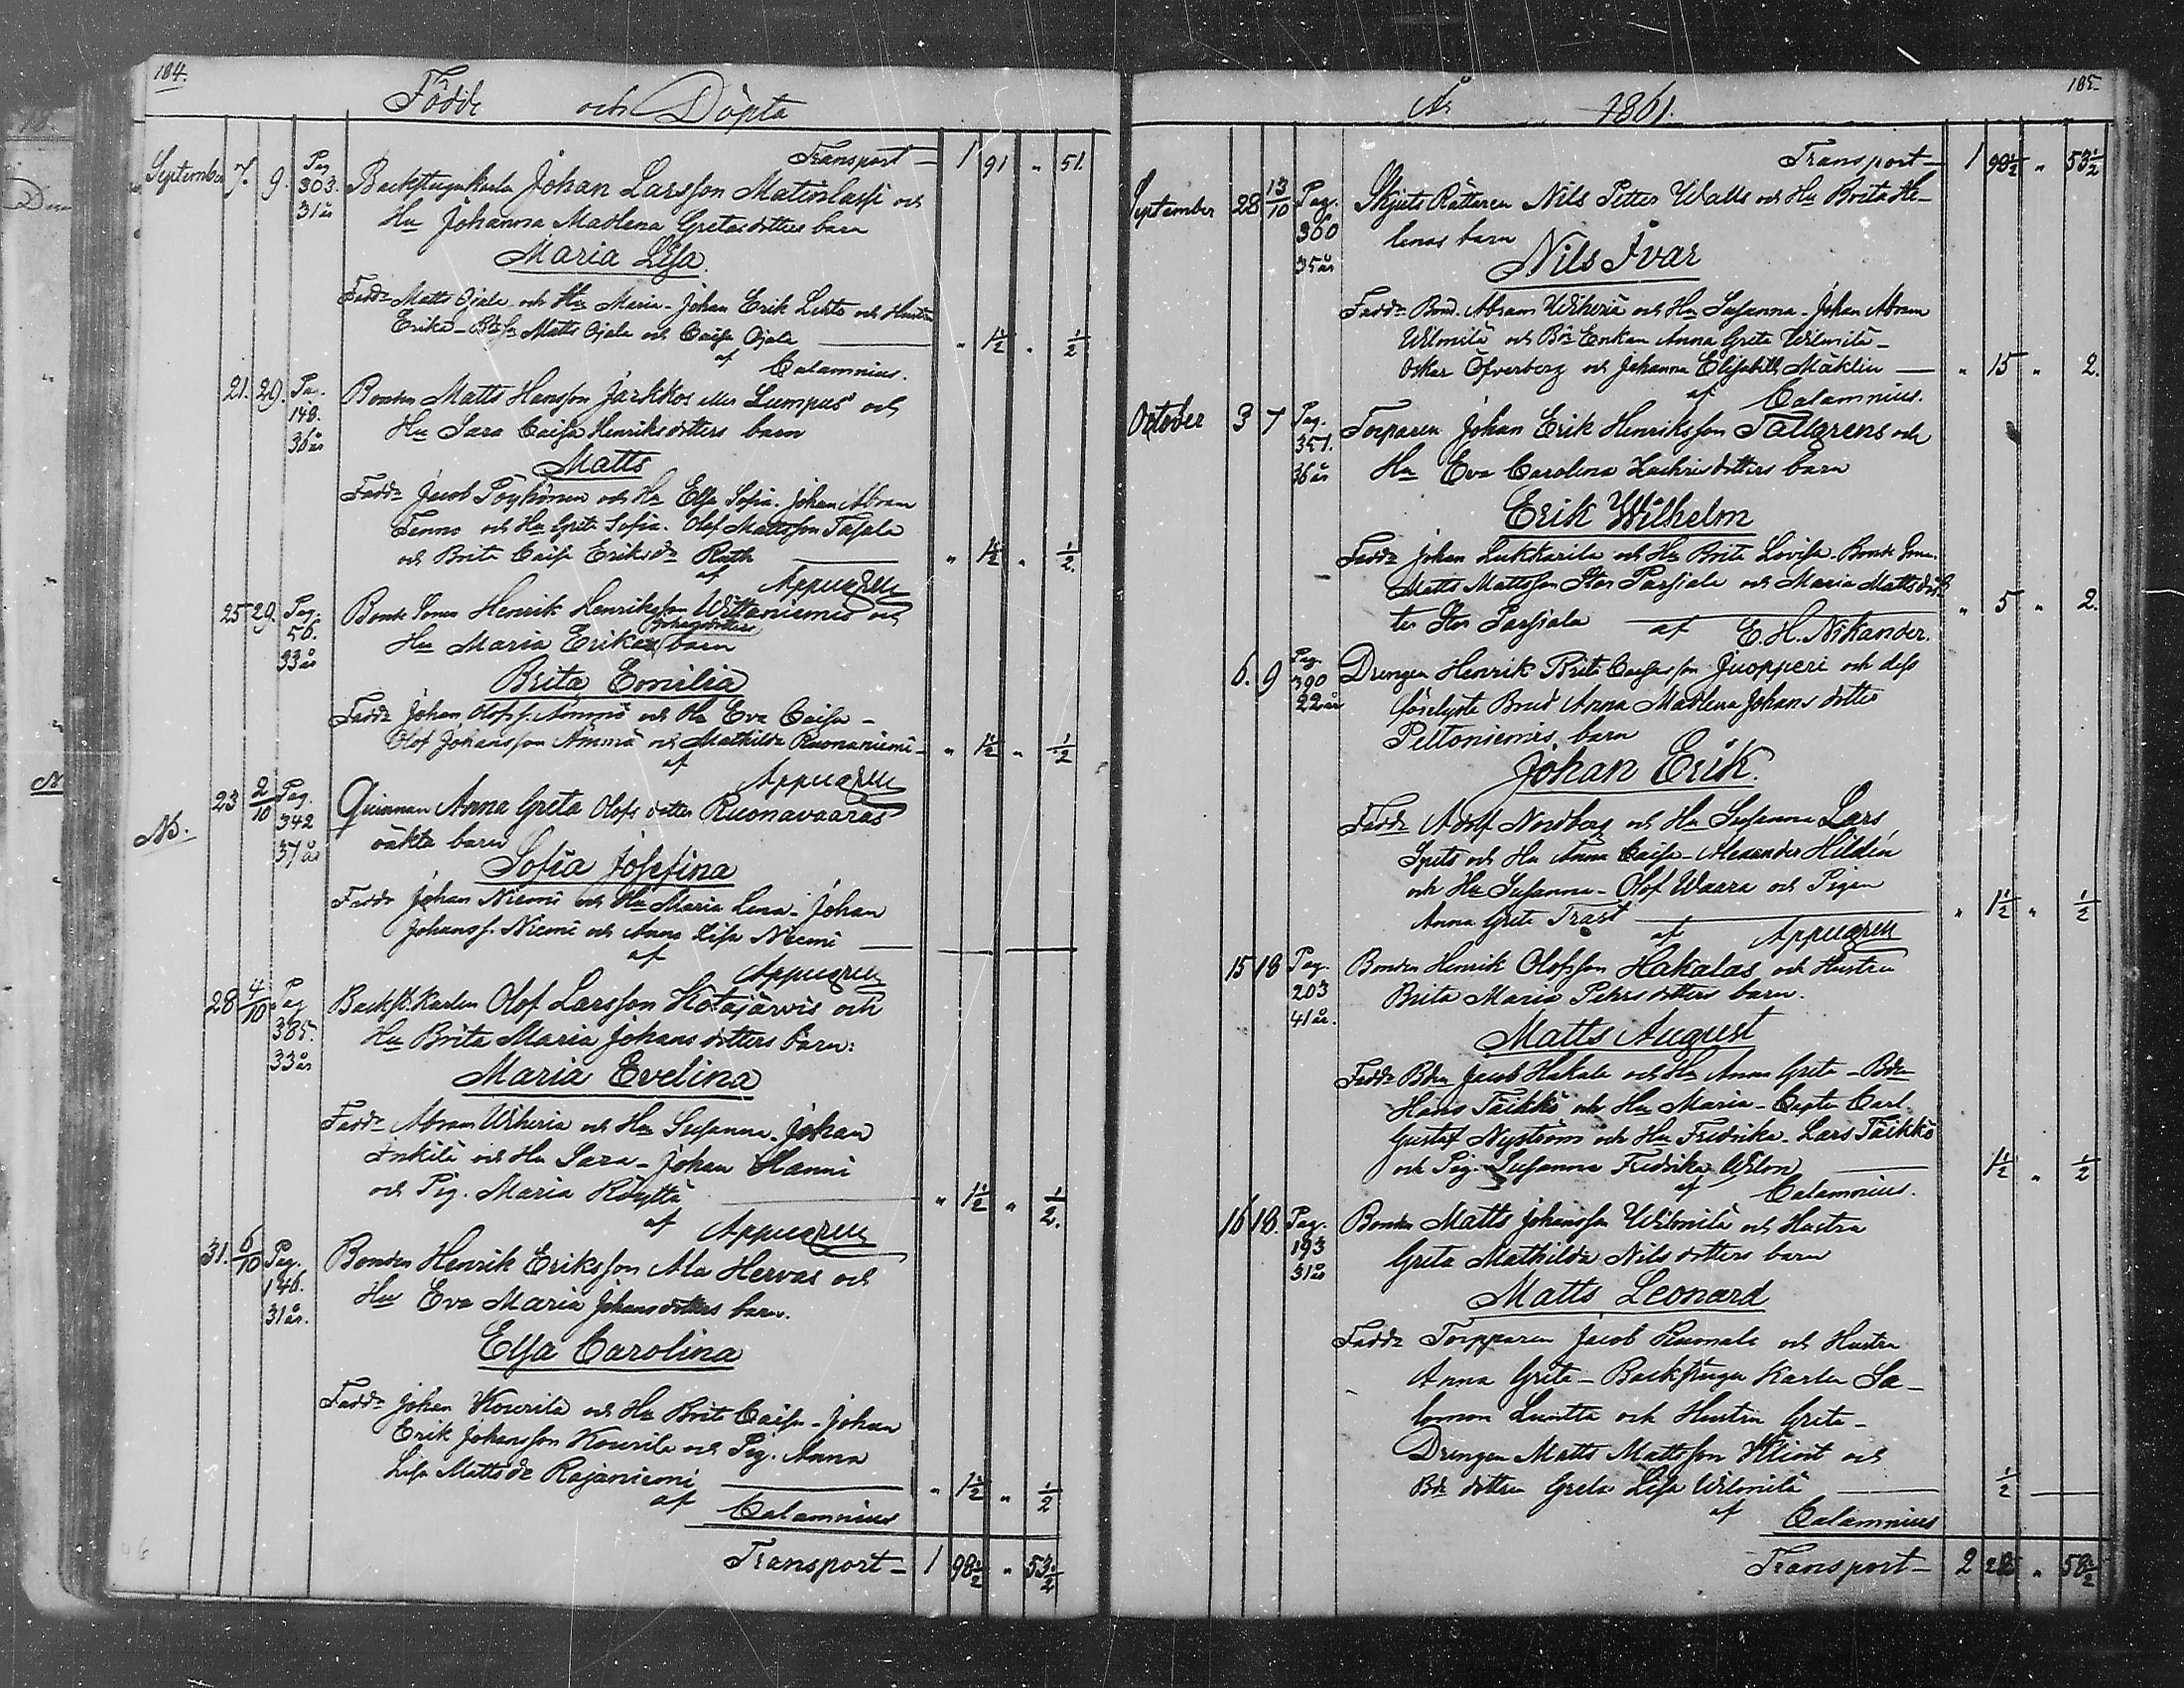 184.
Födde och Döpta
Transport — 1 91 " 51.
September 7. 9. Pag 303. 31 år Backstugukarlen Johan Larsson Matinlassi och
Hu Johanna Madlena Gretasdotters barn
Maria Lisa.
Fadd: Matts Ojala och Hu Maria - Johan Erik Lehto och Hustru
Erika - Matts Ojala och Caisa Ojala — " 1½ " ½
af Calamnius.
21. 29. Pag. 148. 36 år Bonden Matts Hansson Jarkkos eller Lumpus och
Hu Sara Caisa Henriksdotters barn
Matts
Fadd: Jacob Pöykönen och Hu Elsa Sofia. Johan Abram
Tenno och Hu Greta Sofia. Olof Mattsson Tasala
och Brita Caisa Eriksdr Rath — " 1½ " ½.
af Appelgren
25 29. Pag. 56. 33 år Bonde Sonen Henrik Henriksson Wittaniemis och
Hu Maria Erika Johansdotters barn
Brita Emilia
Fadd: Johan Olofss. Ämmä och Hu Eva Caisa -
Olof Johansson Ämmä och Mathilda Ruonaniemi — " 1½ " ½
af Appelgren
NB. 23 2/10 Pag. 342 37 år Quinnan Anna Greta Olofs dotter Ruonavaaras
oäkta barn
Sofia Josefina
Fadd: Johan Niemi och Hu Maria Lena - Johan
Johanss. Niemi och Anna Lisa Niemi —
af Appelgren
28 4/10 Pag 385. 33 år Backst. Karlen Olof Larsson Kotajärwis och
Hu Brita Maria Johans dotters barn:
Maria Evelina
Fadd: Abram Wiheriä och Hu Susanna. Johan
Inkilä och Hu Sara - Johan Hanni
och Pig. Maria Röyttä — " 1½ " ½.
af Appelgren
31. 6/10 Pag. 146. 31 år. Bonden Henrik Eriksson Ala Hervas och
Hu Eva Maria Johansdotters barn.
Elsa Carolina
Fadd: Johan Kourila och Hu Brita Caisa - Johan
Erik Johansson Kourila och Pig. Anna
Lisa Mattsdr Rajaniemi — " 1½ " ½
af Calamnius
Transport — 1 98½ " 53½
År 1861. 185.
Transport — 1 98½ " 53½
September 28 13/10 Pag. 360 35 år Skjuts Rättaren Nils Petter Walls och Hu Brita He-
lenas barn
Nils Ivar
Fadd: Bond. Abram Wiheriä och Hu Susanna - Johan Abram
Wilmilä och Enkan Anna Greta Wilmilä -
Oskar Öfverberg och Johanna Elisabeth Mäklin — " 15 " 2.
af Calamnius.
October 3 7 Pag. 351. 36 år Torparen Johan Erik Henriksson Tallgrens och
Hu Eva Carolina Zachrisdotters barn
Erik Wilhelm
Fadd: Johan Lukkarila och Hu Brita Lovisa. Bonde Sonen
Matts Mattsson Stor Parsiala och Maria Mattsdot-
ter Stor Parsiala — " 5 " 2.
af E. H. Nikander.
6. 9 Pag 390 22 år Drengen Henrik Brita Caisasson Juopperi och dess
förelyste Brud Anna Madlena Johans dotter
Peltoniemis barn
Johan Erik.
Fadd: Adolf Nordberg och Hu Susanna Lars
Spets och Hu Anna Caisa - Alexander Hildén
och Hu Susanna - Olof Waara och Pigan
Anna Greta Trast — " 1½ " ½
af Appelgren
15 18 Pag. 203 41 år. Bonden Henrik Olofsson Hakalas och Hustru
Brita Maria Pehrs dotters barn.
Matts August
Fadd: Bden Jacob Hakala och Hu Anna Greta - Bden
Hans Täikkö och Hu Maria - Capten Carl
Gustaf Nyström och Hu Fredrika - Lars Täikkö
och Pig. Susanna Fredrika Wilen — 1½ " ½
af Calamnius.
16 18. Pag. 193 31 år Bonden Matts Johansson Wilmilä och Hustru
Greta Mathilda Nils dotters barn
Matts Leonard
Fadd: Torpparen Jacob Ruonala och Hustru
Anna Greta - Backstugu Karlen Sa-
lomon Luntta och Hustru Greta -
Drengen Matts Mattsson Kliört och
Bd dottren Greta Lisa Wilmilä — ½ —
af Calamnius
Transport — 2 " 58½